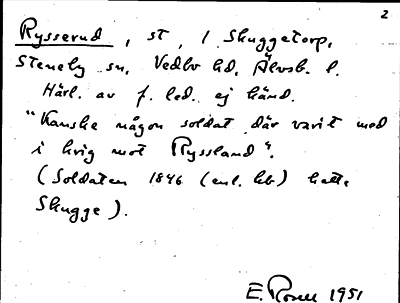 2
Rysserud, st, / Skuggetorp,
Steneby sn, Vedbo hd, Älvsb. l.
Härl. av f. led. ej känd.
"Kanske någon soldat där varit med
i krig mot Ryssland".
(Soldaten 1846 (enl. kb) hette
Skugge).
E. Rosell 1951